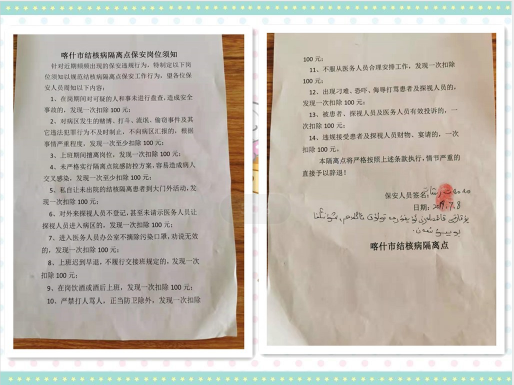 喀什市结核病隔离点保安岗位须知
针对近期频频出现的保安违规行为，特制定以下岗
位须知以规范结核病隔离点保安工作行为，望各位保
安人员周知以下内容：
1、在岗期间对可疑的人和事未进行盘查，造成安全
事故的，发现一次扣除 100 元；
2、对病区发生的赌博、打斗、流氓、偷窃事件及其
它违法犯罪行为不及时制止，不向病区汇报的，根据
事情严重程度，发现一次至少扣除 100 元；
3、上班期间擅离岗位，发现一次扣除 100 元；
4、未严格实行隔离点院感防控方案，容易造成病人
交叉感染，发现一次至少扣除 100 元；
5、私自让未出院的结核隔离患者到大门外活动，发
现一次扣除 100 元；
6、对外来探视人员不登记，甚至未请示医务人员让
探视人员进入病区的，发现一次扣除 100 元；
7、进入医务人员办公室不摘除污染口罩，劝说无效
的，发现一次扣除 100 元；
8、上班迟到早退，不履行交接班规定的，发现一次
扣除 100 元；
9、在岗饮酒或酒后上班，发现一次扣除 100 元；
10、严禁打人骂人，正当防卫除外，发现一次扣除
100 元；
11、不服从医务人员合理安排工作，发现一次扣除
100 元；
12、出现刁难、恐吓、侮辱打骂患者及探视人员的，
发现一次扣除 100 元；
13、被患者、探视人员及医务人员有效投诉的，一
次扣除 100 元；
14、违规接受患者及探视人员财物、宴请的，一次
扣除 100 元。
本隔离点将严格按照上述条款执行，情节严重的
直接予以辞退！
保安人员签名：
日期：
喀什市结核病隔离点